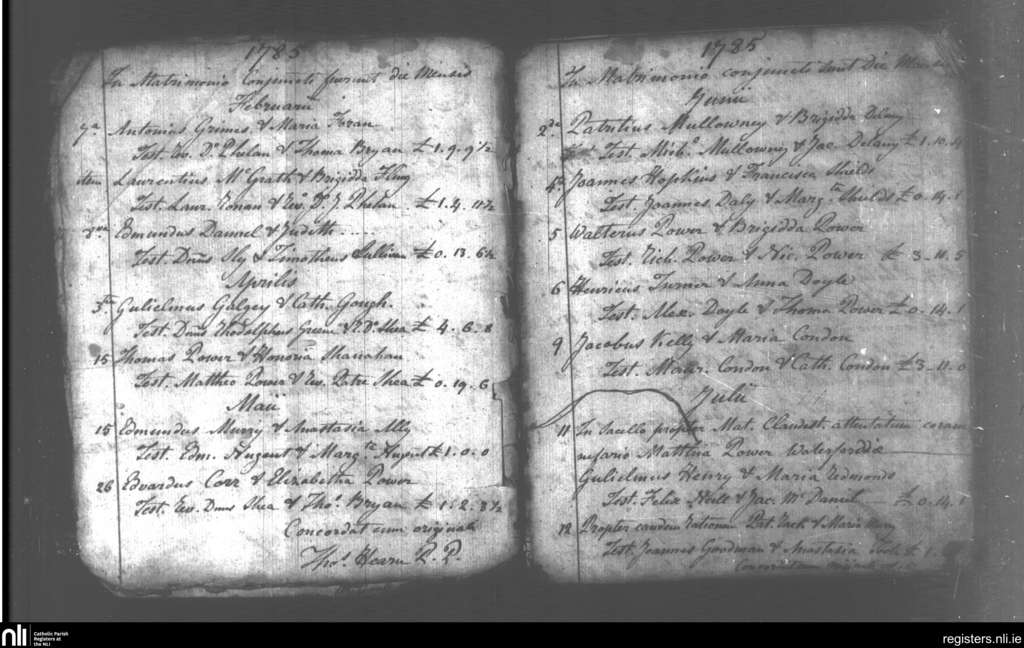 1785
In Matrimonio Conjuncti fuerunt die Mensis
Februarii
7a Antonius Grimes & Maria
Test. Rev. Ds. Phelan & Thoma Bryan £ 1. 9. 9½
Item Laurentius McGrath & Brigidda King
Test. Laur. Ronan & Rev. Ds. J. Phelan. £ 1. 4. 11½
8va Edmundus Daniel & Judith .....
Test. Dnus Sly & Timotheus Sullivan £ 0. 13. 6½
Aprilis
5ta Gulielmus Galgey & Cath. Gough.
Test. Dnus Rhodolphus Greene & R. Ds. Shea £ 4. 6. 8
15 Thomas Power & Honoria Shanahan
Test. Mattheo Power & Rev. Patre Shea £ 0. 19. 6
Maii
15 Edmundus Murry & Anastasia Ally
Test. Edm. Nugent & Margta Nugent £ 1. 0. 0
26 Edvardus Corr & Elizabetha Power
Test. Rev. Dnus Shea & Thos. Bryan £ 1. 2. 8½
Concordat cum originali
Thos. Hearn P. P.
1785
In Matrimonio conjuncti sunt die Mensis
Junii
2da Patritius Mullowney & Brigidda Delany
Test. Michs. Mullowny & Jac. Delany £ 1. 10.
4ta Joannes Hopkins & Francisca Shields
Test. Joannes Daly & Margta Shields £ 0. 14. 1
5 Walterus Power & Brigidda Power
Test. Rich. Power & Nic. Power £ 3. 11. 5
6 Henricus Turner & Anna Doyle
Test. Alex. Doyle & Thoma Power £ 0. 14. 1
9 Jacobus Kelly & Maria Condon
Test. Maur. Condon & Cath. Condon £ 3. 11. 0
Julii
11 In Sacello propter Mat. Clandest. attentatum coram
nefario Matthia Power Waterfordiæ
Gulielmus Henry & Maria Redmonds
Test. Felix Neill & Jac. McDaniel £ 0. 14. 1
12 Propter eandem rationem Pat. Jack & Maria
Test. Joannes Goodman & Anastasia £ 1.
nli
Catholic Parish
Registers at
the NLI
registers.nli.ie